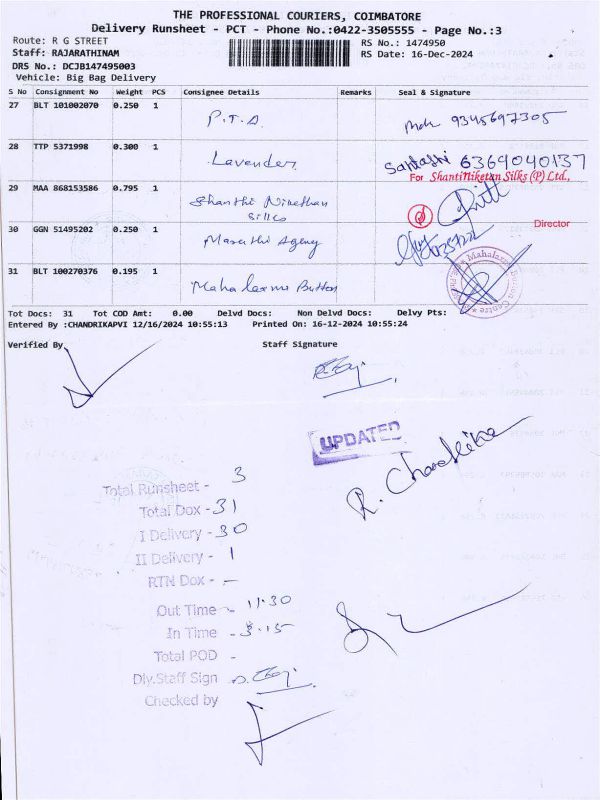 THE PROFESSIONAL COURIERS, COIMBATORE
Delivery Runsheet - PCT - Phone No.:0422-3505555 - Page No.:3
Route: R G STREET RS No.: 1474950
Staff: RAJARATHINAM RS Date: 16-Dec-2024
DRS No.: DCJB147495003
Vehicle: Big Bag Delivery
S No Consignment No Weight PCS Consignee Details Remarks Seal & Signature
27 BLT 101002070 0.250 1 P.T.A. 9345697305
28 TTP 5371998 0.300 1 Lavender 6369040137
For ShantiNiketan Silks (P) Ltd.,
29 MAA 868153586 0.795 1 Shanthi Nikethan
Silks
Director
30 GGN 51495202 0.250 1 Maruthi Agency
31 BLT 100270376 0.195 1 Mahalaxmi Button
Tot Docs: 31 Tot COD Amt: 0.00 Delvd Docs: Non Delvd Docs: Delvy Pts:
Entered By :CHANDRIKAPVI 12/16/2024 10:55:13 Printed On: 16-12-2024 10:55:24
Verified By Staff Signature
UPDATED
R. Chandrika
Total Runsheet - 3
Total Dox - 31
I Delivery - 30
II Delivery - 1
RTN Dox - -
Out Time - 11.30
In Time - 3.15
Total POD -
Dlv.Staff Sign
Checked by